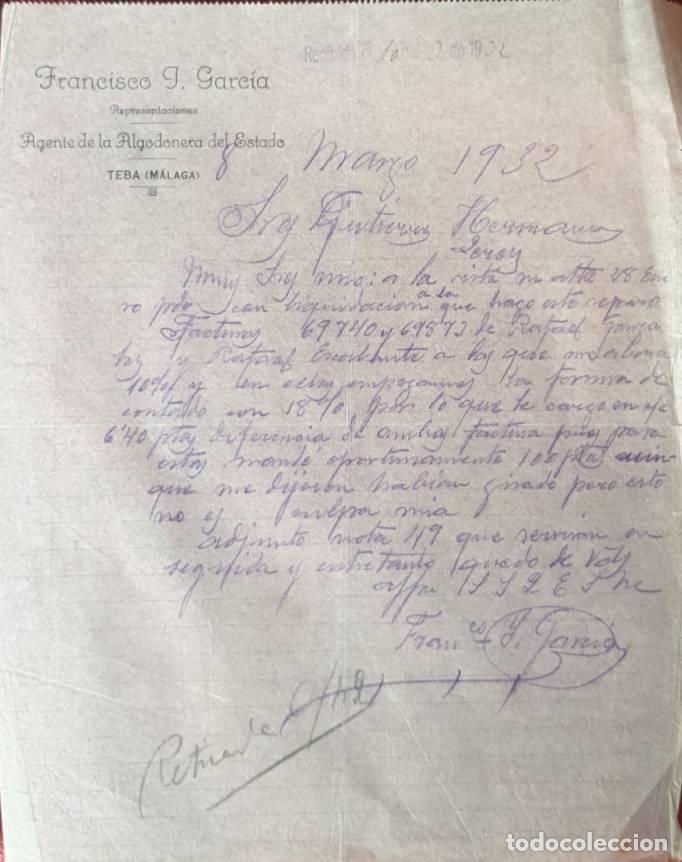 Recibido el 10 de 3 de 1932
Francisco J. García
Representaciones
Agente de la Algodonera del Estado
TEBA (MÁLAGA)
8 Marzo 1932
Srs Gutiérrez Hermanos
Jerez
Muy Srs mios: a la vista su atta 28 Ene
ro pdo con liquidacion a la que hago este reparo
Facturas 69740 y 69873 de Rafael Gonza
lez y Rafael Escalante a las que me abona
10% y en ellas empezamos la forma de
contado con 18%, por lo que le cargo en s/c
6'40 ptas diferencia de ambas factura pues para
estas mandé oportunamente 100 ptas aun
que me dijeron habian girado pero esto
no es culpa mia
adjunto nota 49 que serviran en
seguida y entretanto quedo de Vds
affmo S S Q E S M
Fran co J. García
Retirada
todocoleccion